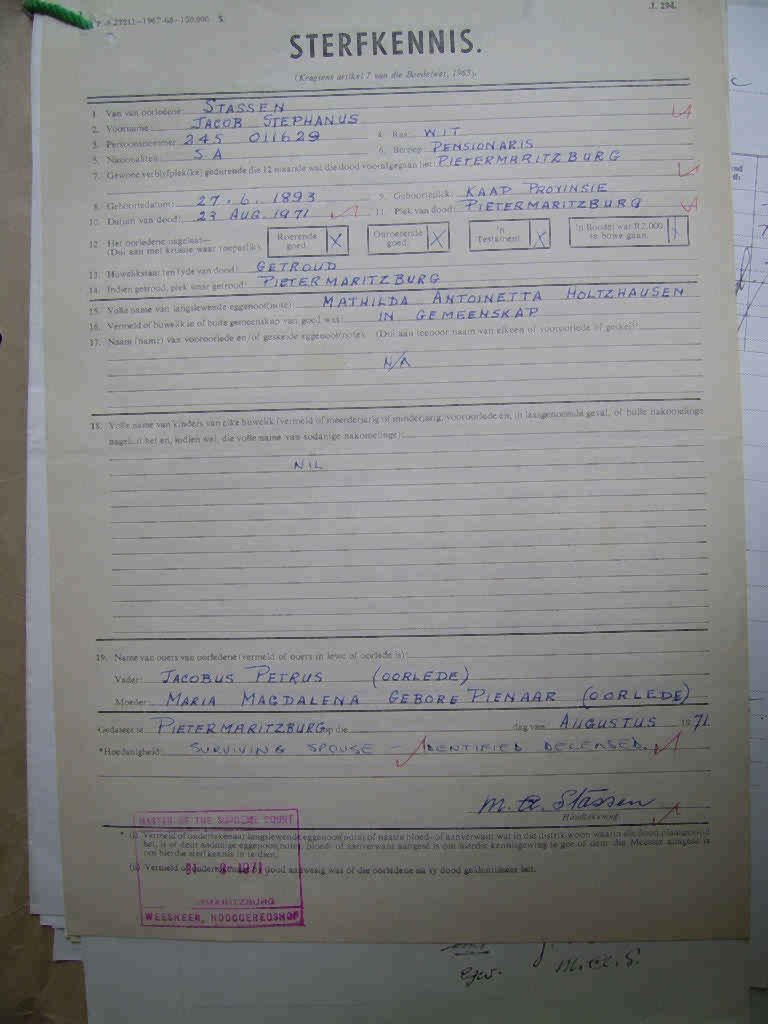 J. 294.
P.-S.27211—1967-68—150,000 S.
STERFKENNIS.
(Kragtens artikel 7 van die Boedelwet, 1965).
1. Van van oorledene: STASSEN
2. Voorname: JACOB STEPHANUS
3. Persoonsnommer: 245 011629 4. Ras: WIT
5. Nasionaliteit: S A 6. Beroep: PENSIONARIS
7. Gewone verblyfplek(ke) gedurende die 12 maande wat die dood voorafgegaan het: PIETERMARITZBURG
8. Geboortedatum: 27.6.1893 9. Geboorteplek: KAAP PROVINSIE
10. Datum van dood: 23 AUG. 1971 11. Plek van dood: PIETERMARITZBURG
12. Het oorledene nagelaat— Roerende goed. X Onroerende goed. X 'n Testament. X 'n Boedel war R2,000 te bowe gaan. X
(Dui aan met kruisie waar toepaslik).
13. Huwelikstaat ten tyde van dood: GETROUD
14. Indien getroud, plek waar getroud: PIETERMARITZBURG
15. Volle name van langslewende eggenoot(note): MATHILDA ANTOINETTA HOLTZHAUSEN
16. Vermeld of huwelik in of buite gemeenskap van goed was: IN GEMEENSKAP
17. Naam (name) van vooroorlede en/of geskeide eggenoot(note). (Dui aan teenoor naam van elkeen of vooroorlede of geskei):
N/A
18. Volle name van kinders van elke huwelik (vermeld of meerderjarig of minderjarig, vooroorlede en, in laasgenoemde geval, of hulle nakomelinge
nagelaat het en, indien wel, die volle name van sodanige nakomelinge):
NIL
19. Name van ouers van oorledene (vermeld of ouers in lewe of oorlede is):
Vader: JACOBUS PETRUS (OORLEDE)
Moeder: MARIA MAGDALENA GEBORE PIENAAR (OORLEDE)
Gedateer te PIETERMARITZBURG op die dag van AUGUSTUS 1971
*Hoedanigheid: SURVIVING SPOUSE – IDENTIFIED DECEASED.
M. A. Stassen
Handtekening
MASTER OF THE SUPREME COURT
* (i) Vermeld of ondertekenaar langslewende eggenoot(note) of naaste bloed- of aanverwant wat in die distrik woon waarin die dood plaasgevind
het, is of deur sodanige eggenoot(note), bloed- of aanverwant aangesê is om hierdie kennisgewing te gee of deur die Meester aangesê is
om hierdie sterfkennis in te dien.
(ii) Vermeld of ondertekenaar by dood aanwesig was of die oorledene na sy dood geïdentifiseer het.
8 1971
PMARITZBURG
WEESHEER, HOOGGEREGSHOF
M. A. S.